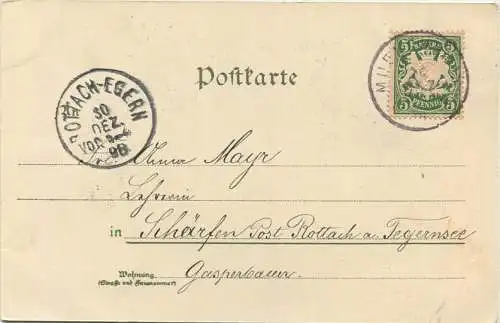 Postkarte
ROTTACH-EGERN
30
DEZ.
VOR
98
BAYERN
5 5
PFENNIG
Anna Mayr
Lehrerin
in Schärfen Post Rottach a. Tegernsee
Wohnung Gasperbauer
(Straße und Hausnummer)